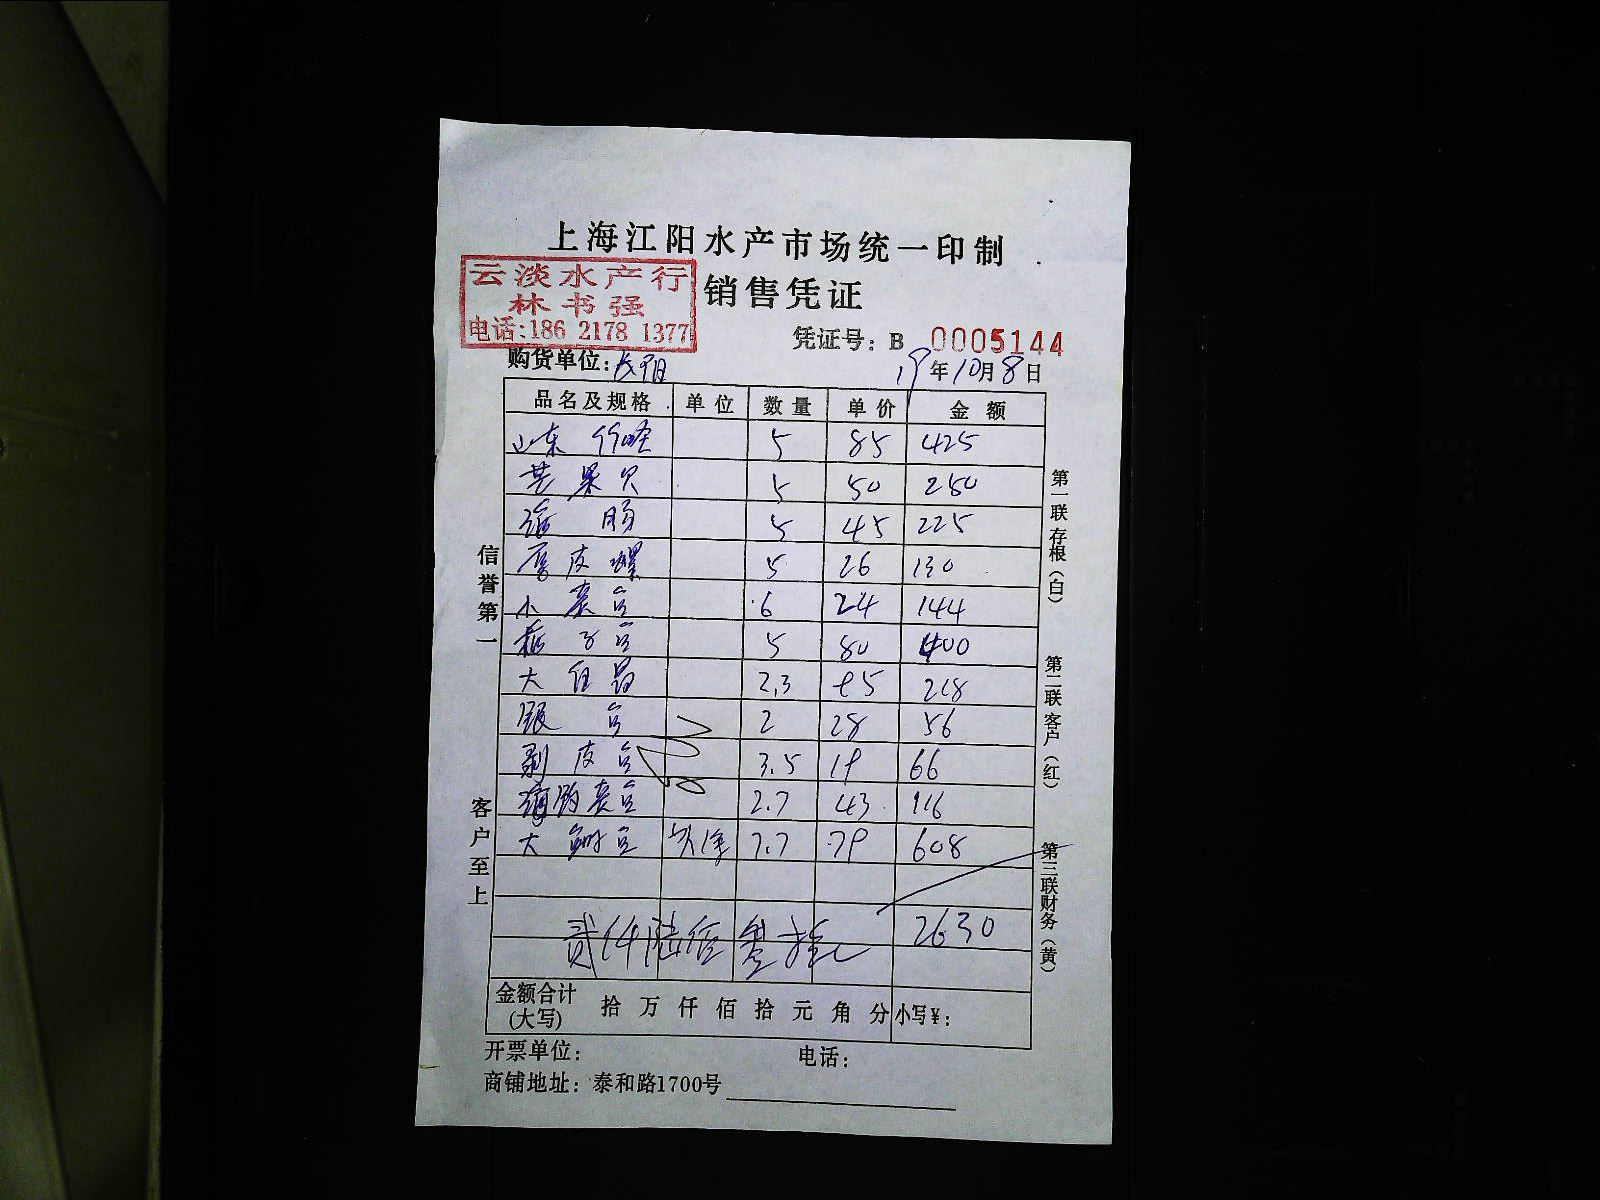 上海江阳水产市场统一印制
云淡水产行
林书强
电话:186 2178 1377
销售凭证
凭证号: B 0005144
购货单位:
19年10月8日
品名及规格 单位 数量 单价 金额
山东 5 85 425
芒果贝 5 50 250
海肠 5 45 225
厚皮螺 5 26 130
小 6 24 144
5 80 400
大 2.3 95 218
银 2 28 56
剥皮 3.5 19 66
2.7 43 116
大 7.7 79 608
贰仟陆佰叁拾 2630
金额合计(大写) 拾万仟佰拾元角分 小写¥:
开票单位: 电话:
商铺地址: 泰和路1700号
信誉第一
客户至上
第一联存根(白)
第二联客户(红)
第三联财务(黄)